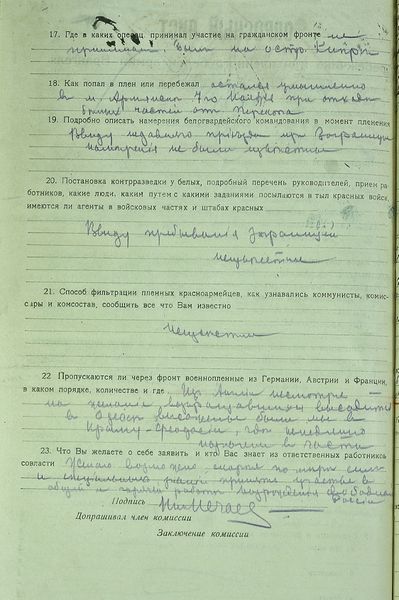 17. Где в каких опер ац принимал участие на гражданском фронте не
принимал. Был на остр. Кипре
18. Как попал в плен или перебежал остался умышленно
в м. Армянске 7го Ноября при отходе
белых частей от Перекопа
19. Подробно описать намерения белогвардейского командования в момент пленения
Ввиду недавнего приезда из Заграницы
намерения не были известны
20. Постановка контрразведки у белых, подробный перечень руководителей, прием ра-
ботников, какие люди, каким путем с какими заданиями посылаются в тыл красных войск,
имеются ли агенты в войсковых частях и штабах красных
Ввиду пребывания Заграницей
неизвестны
21. Способ фильтрации пленных красноармейцев, как узнавались коммунисты, комис-
сары и комсостав, сообщить все что Вам известно
Неизвестны
22 Пропускаются ли через фронт военнопленные из Германии, Австрии и Франции,
в каком порядке, количестве и где Из Англии несмотря
на желания возвращавшихся высадиться
в Одессе высажены были мы в
Крыму-Феодосии, где немедленно
назначены в части
23. Что Вы желаете о себе заявить и кто Вас знает из ответственных работников
совласти Желаю возможно скорее по мере сил
и специальных знаний принять участие в
общей и горячей работе возрождения свободной
России
Подпись Нечаев
Допрашивал член комиссии
Заключение комиссии